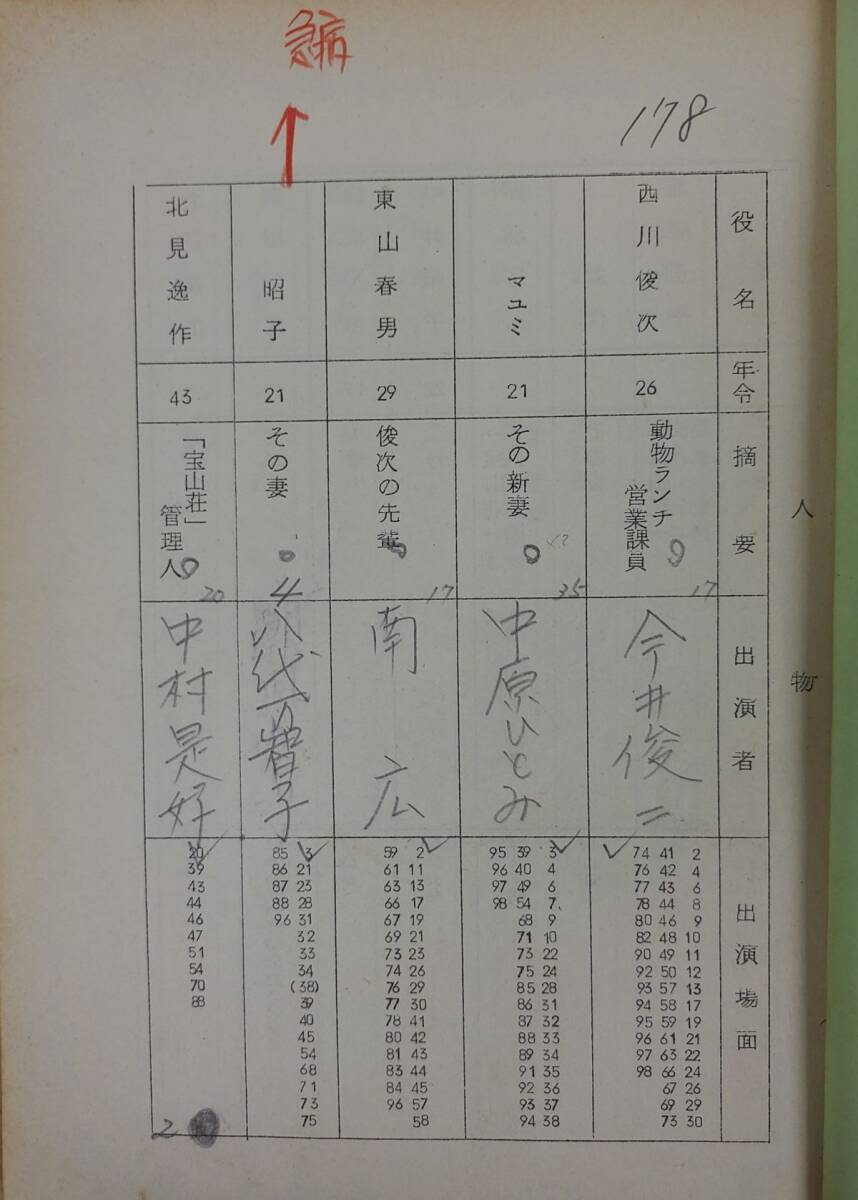 急病
178
人物
役名
年令
摘要
出演者
出演場面
西川俊次
26
動物ランチ
営業課員
17
今井俊二
2 4 6 8 9 10 11 12 13 17 19 21 22 24 26 29 30
41 42 43 44 46 48 49 50 57 58 59 61 63 66 67 69 73
74 76 77 78 80 82 90 92 93 94 95 96 97 98
マユミ
21
その新妻
35
中原ひとみ
3 4 6 7 9 10 22 24 28 31 32 33 34 35 36 37 38
39 40 49 54 68 71 73 75 85 86 87 88 89 91 92 93 94
95 96 97 98
東山春男
29
俊次の先輩
17
南広
2 11 13 17 19 21 23 26 29 30 41 42 43 44 45 57 58
59 61 63 66 67 69 73 74 76 77 78 80 81 83 84 96
昭子
21
その妻
4
八代万智子
3 21 23 28 31 32 33 34 (38) 39 40 45 54 68 71 73 75
85 86 87 88 96
北見逸作
43
「宝山荘」
管理人
20
中村是好
20 39 43 44 46 47 51 54 70 88
2